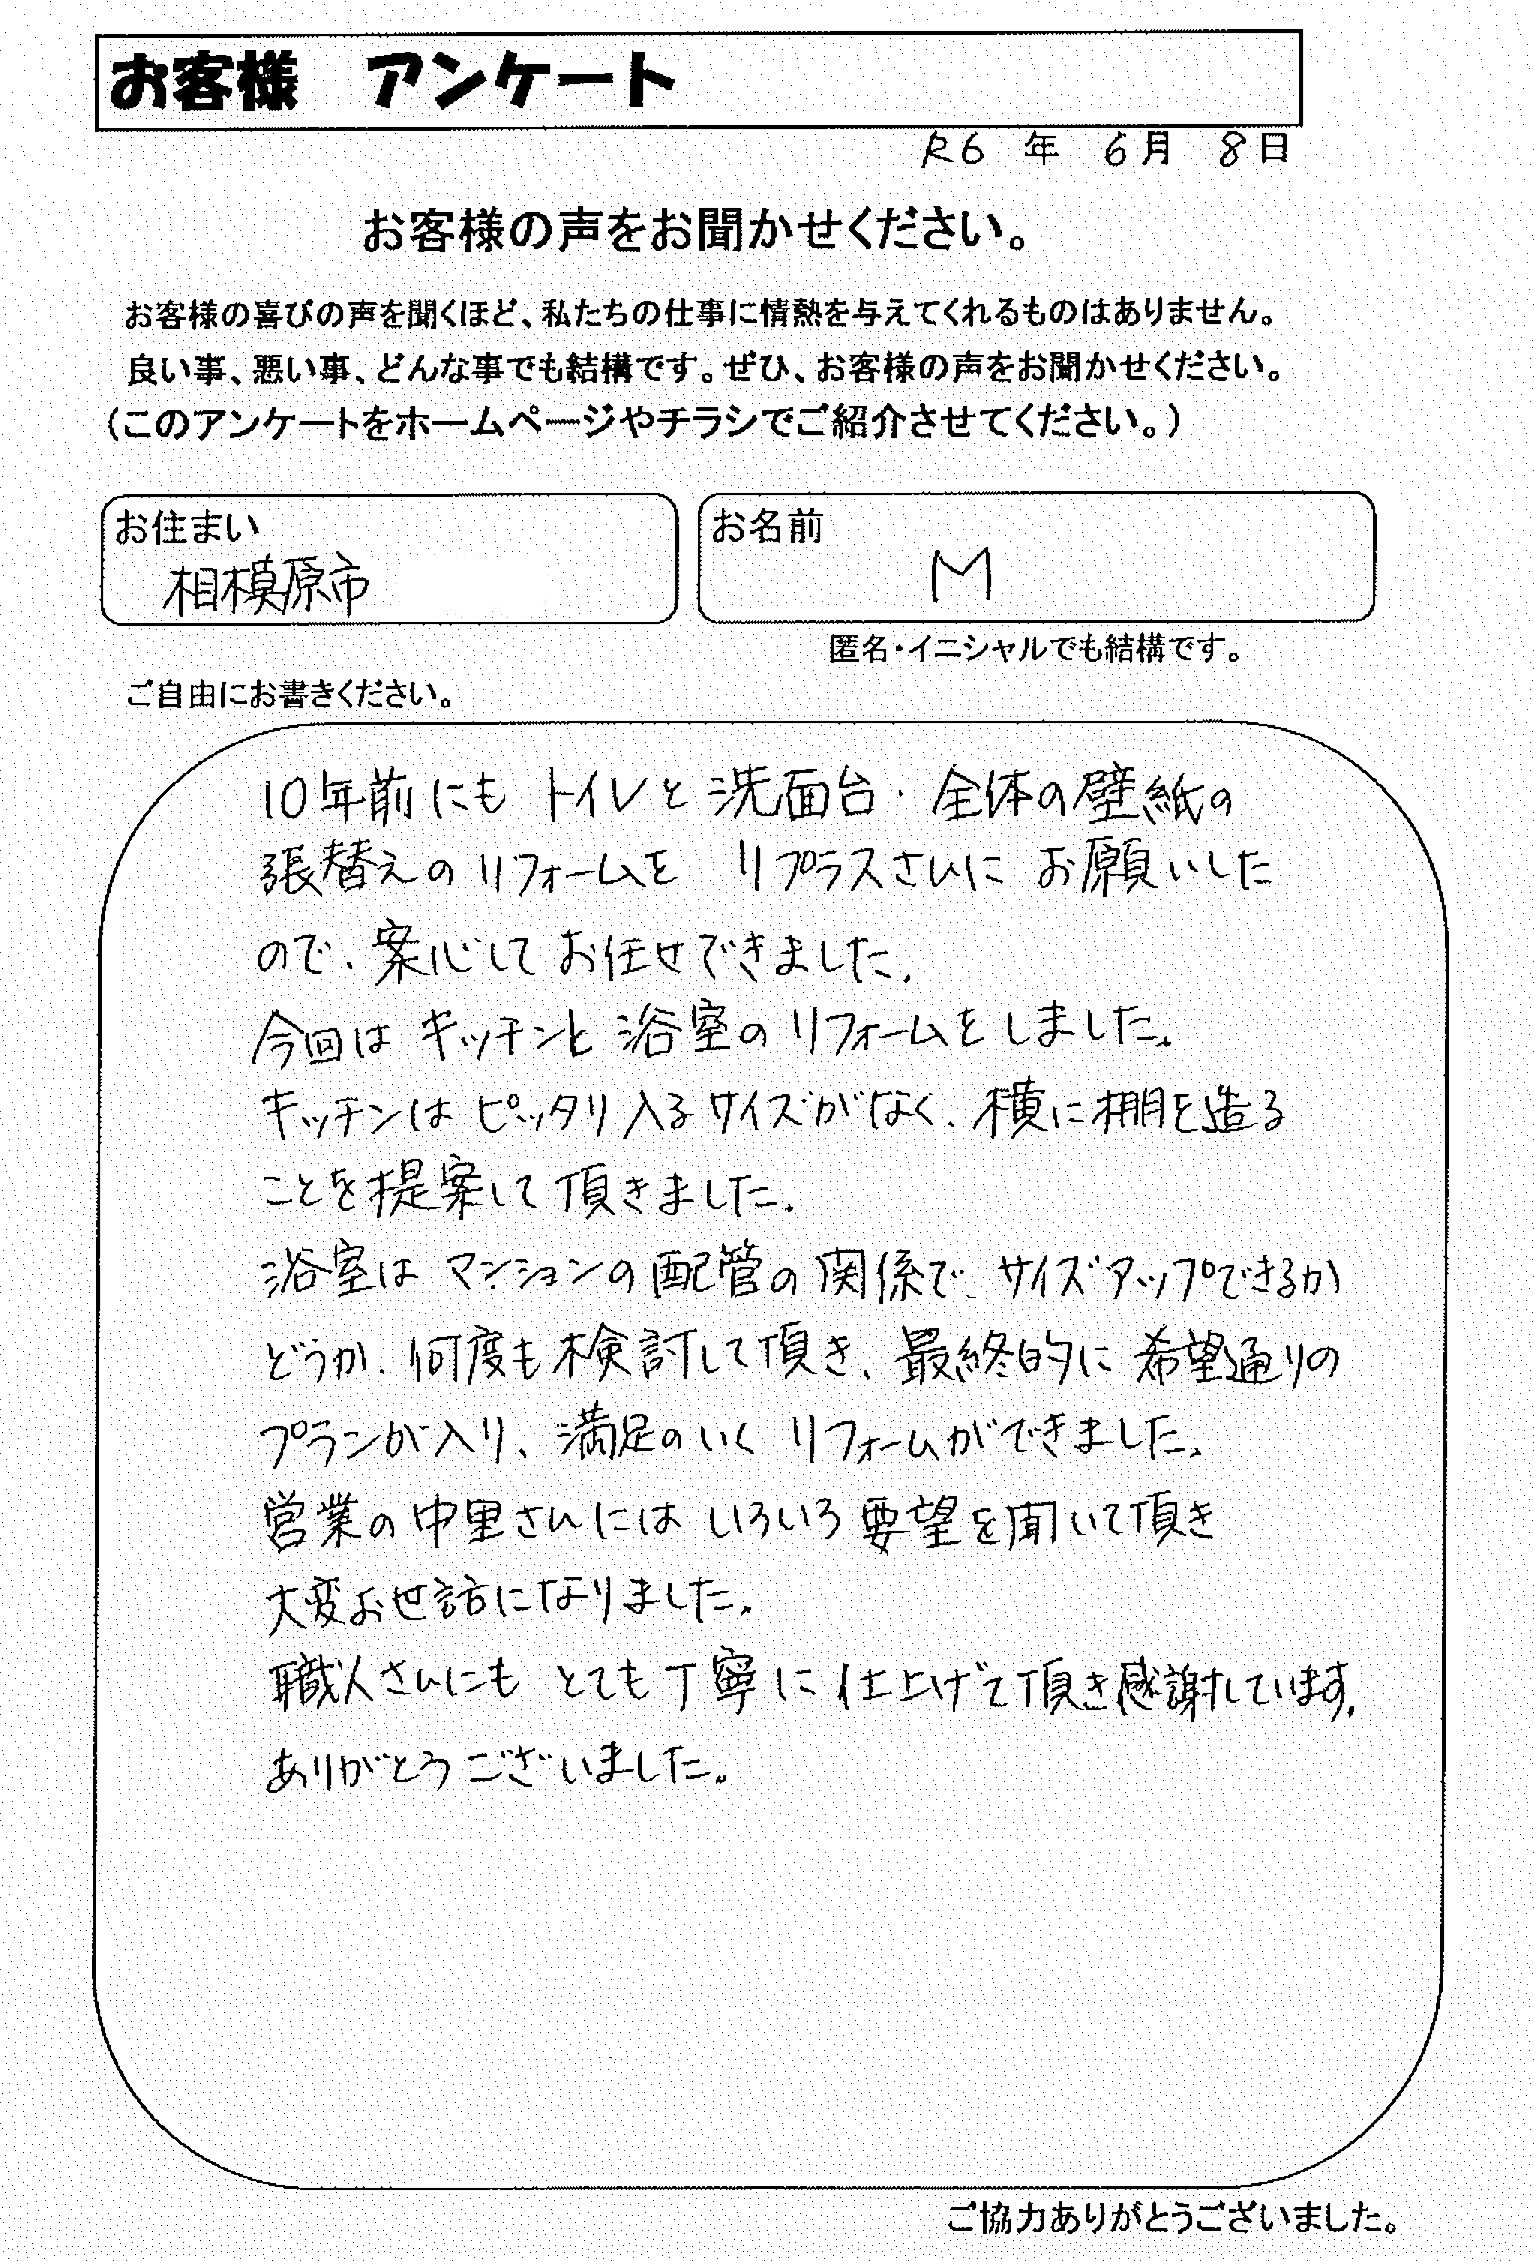 お客様　アンケート
R6 年 6月 8日
お客様の声をお聞かせください。
お客様の喜びの声を聞くほど、私たちの仕事に情熱を与えてくれるものはありません。
良い事、悪い事、どんな事でも結構です。ぜひ、お客様の声をお聞かせください。
（このアンケートをホームページやチラシでご紹介させてください。）
お住まい
相模原市
お名前
M
匿名・イニシャルでも結構です。
ご自由にお書きください。
10年前にも トイレと 洗面台・全体の壁紙の
張替えの リフォームを リプラスさんに お願いした
ので、案心して お任せできました。
今回は キッチンと 浴室の リフォームを しました。
キッチンは ピッタリ入るサイズがなく、横に棚を造る
ことを提案して頂きました。
浴室は マンションの配管の関係で、サイズアップできるか
どうか、何度も検討して頂き、最終的に 希望通りの
プランが入り、満足のいく リフォームができました。
営業の中里さんには いろいろ要望を聞いて頂き
大変お世話になりました。
職人さんにも とても丁寧に仕上げて頂き感謝しています。
ありがとうございました。
ご協力ありがとうございました。